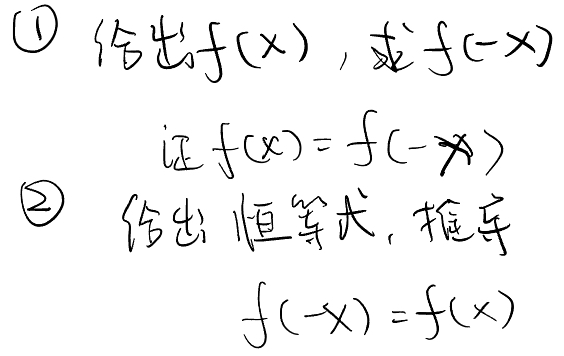 ① 给出f(x),求f(-x)
证f(x)=f(-x)
② 给出恒等式,推导
f(-x)=f(x)